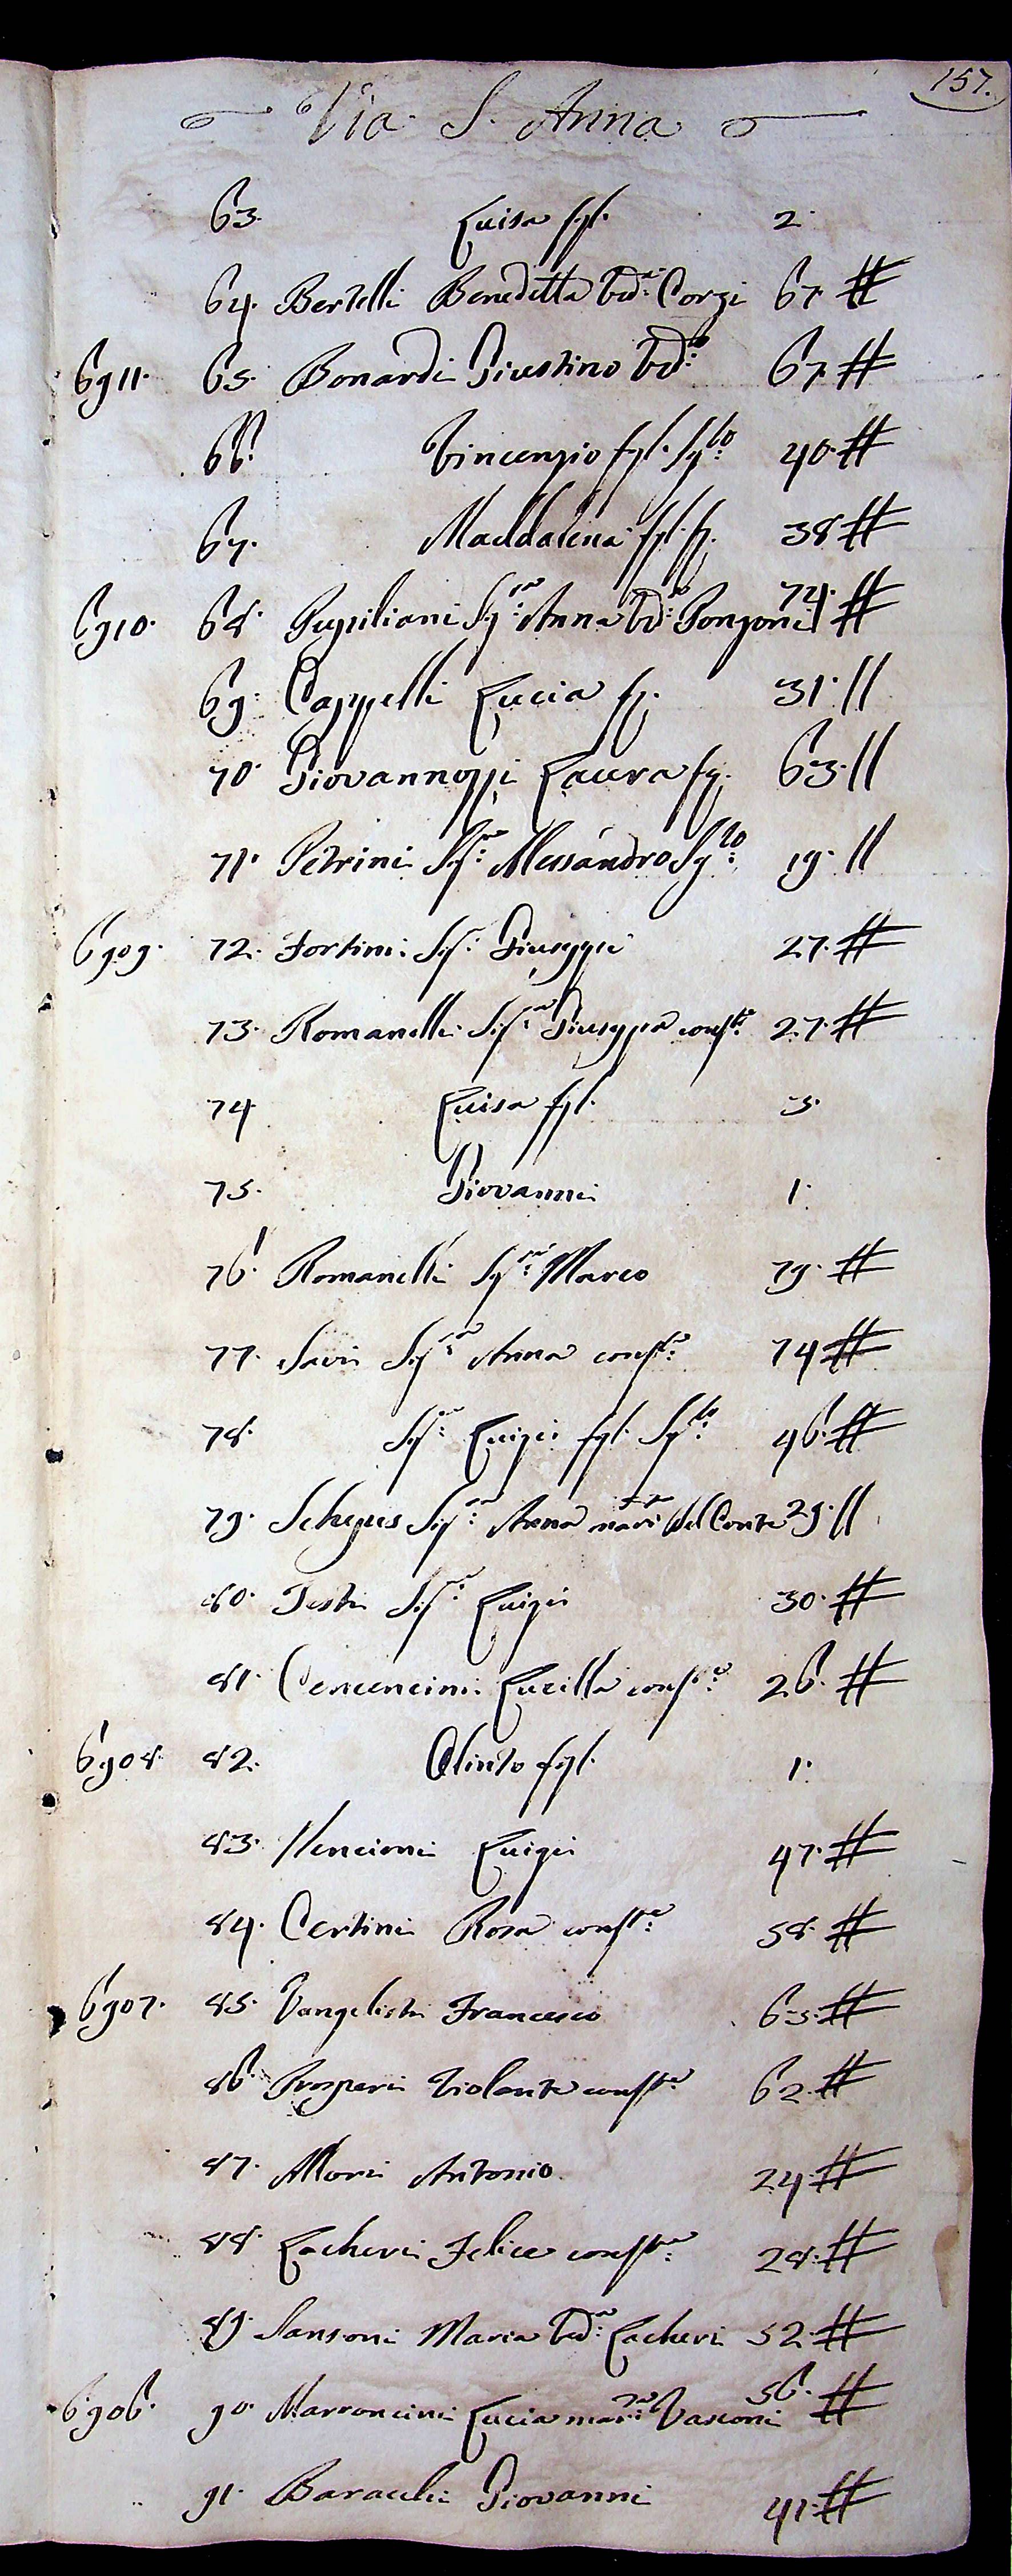 157.
Via S. Anna
63. Luisa fgl. 2.
64. Bertelli Benedetta Ved.a Corzi 67. #
6911. 65. Bonardi Giustino Vd.o 67. #
66. Vincenzio fgl. Sg.lo 40. #
67. Maddalena fgl. fz. 38 #
6910. 68. Pupiliani Sig.ra Anna Vd.a Ponzoni 74. #
69. Cappelli Lucia fz. 31. //
70. Giovannozzi Laura fz. 63. //
71. Petrini Sig.r Alessandro Sg.lo 19. //
6909. 72. Fortini Sig.r Giuseppe 27. #
73. Romanelli Sig.ra Giuseppa cons.te 27. #
74 Luisa fgl. 3.
75. Giovanni 1.
76. Romanelli Sig.r Marco 79. #
77. Savi Sig.ra Anna cons.te 74 #
78. Sig.r Luigi fgl. Sg.lo 46. #
79. Sig.ra Anna mar.ta Del Conte 29. //
80. Testi Sig.r Luigi 30. #
81. Cencencini Lucilla cons.te 26. #
6908. 82. Olinto fgl. 1.
83. Nencioni Luigi 47. #
84. Certini Rosa cons.te 58. #
6907. 85. Vangelisti Francesco 65. #
86. Prosperi Violante cons.te 62. #
87. Mori Antonio 24. #
88. Lacheri Felice cons.te 28. #
89. Sansoni Maria Ved.a Lacheri 52. #
6906. 90. Marroncini Lucia mar.ta Vasconi 56. #
91. Giovanni 41. #